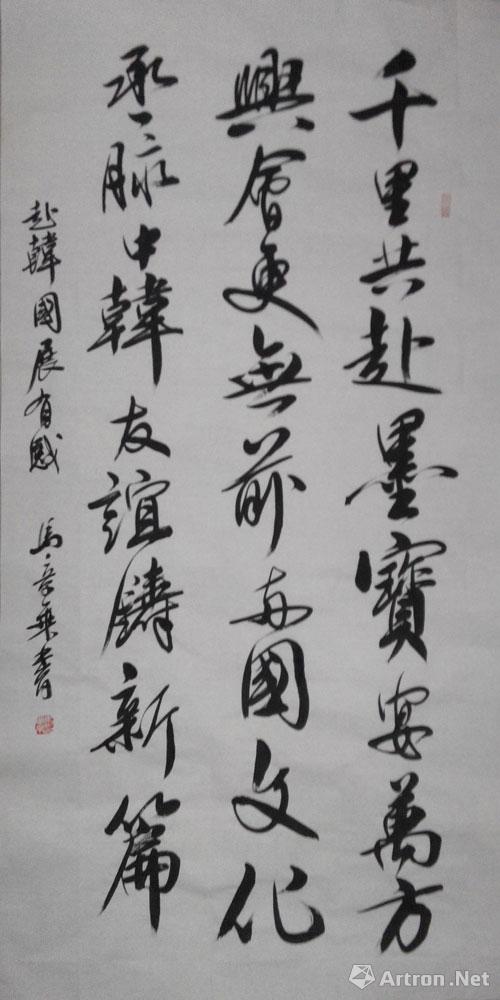 千里共赴墨寶宴萬方
興會更無前兩國文化
承一脉中韓友誼鑄新篇
赴韓國展有感 馬章乘書
雅昌艺术网
Artron.Net